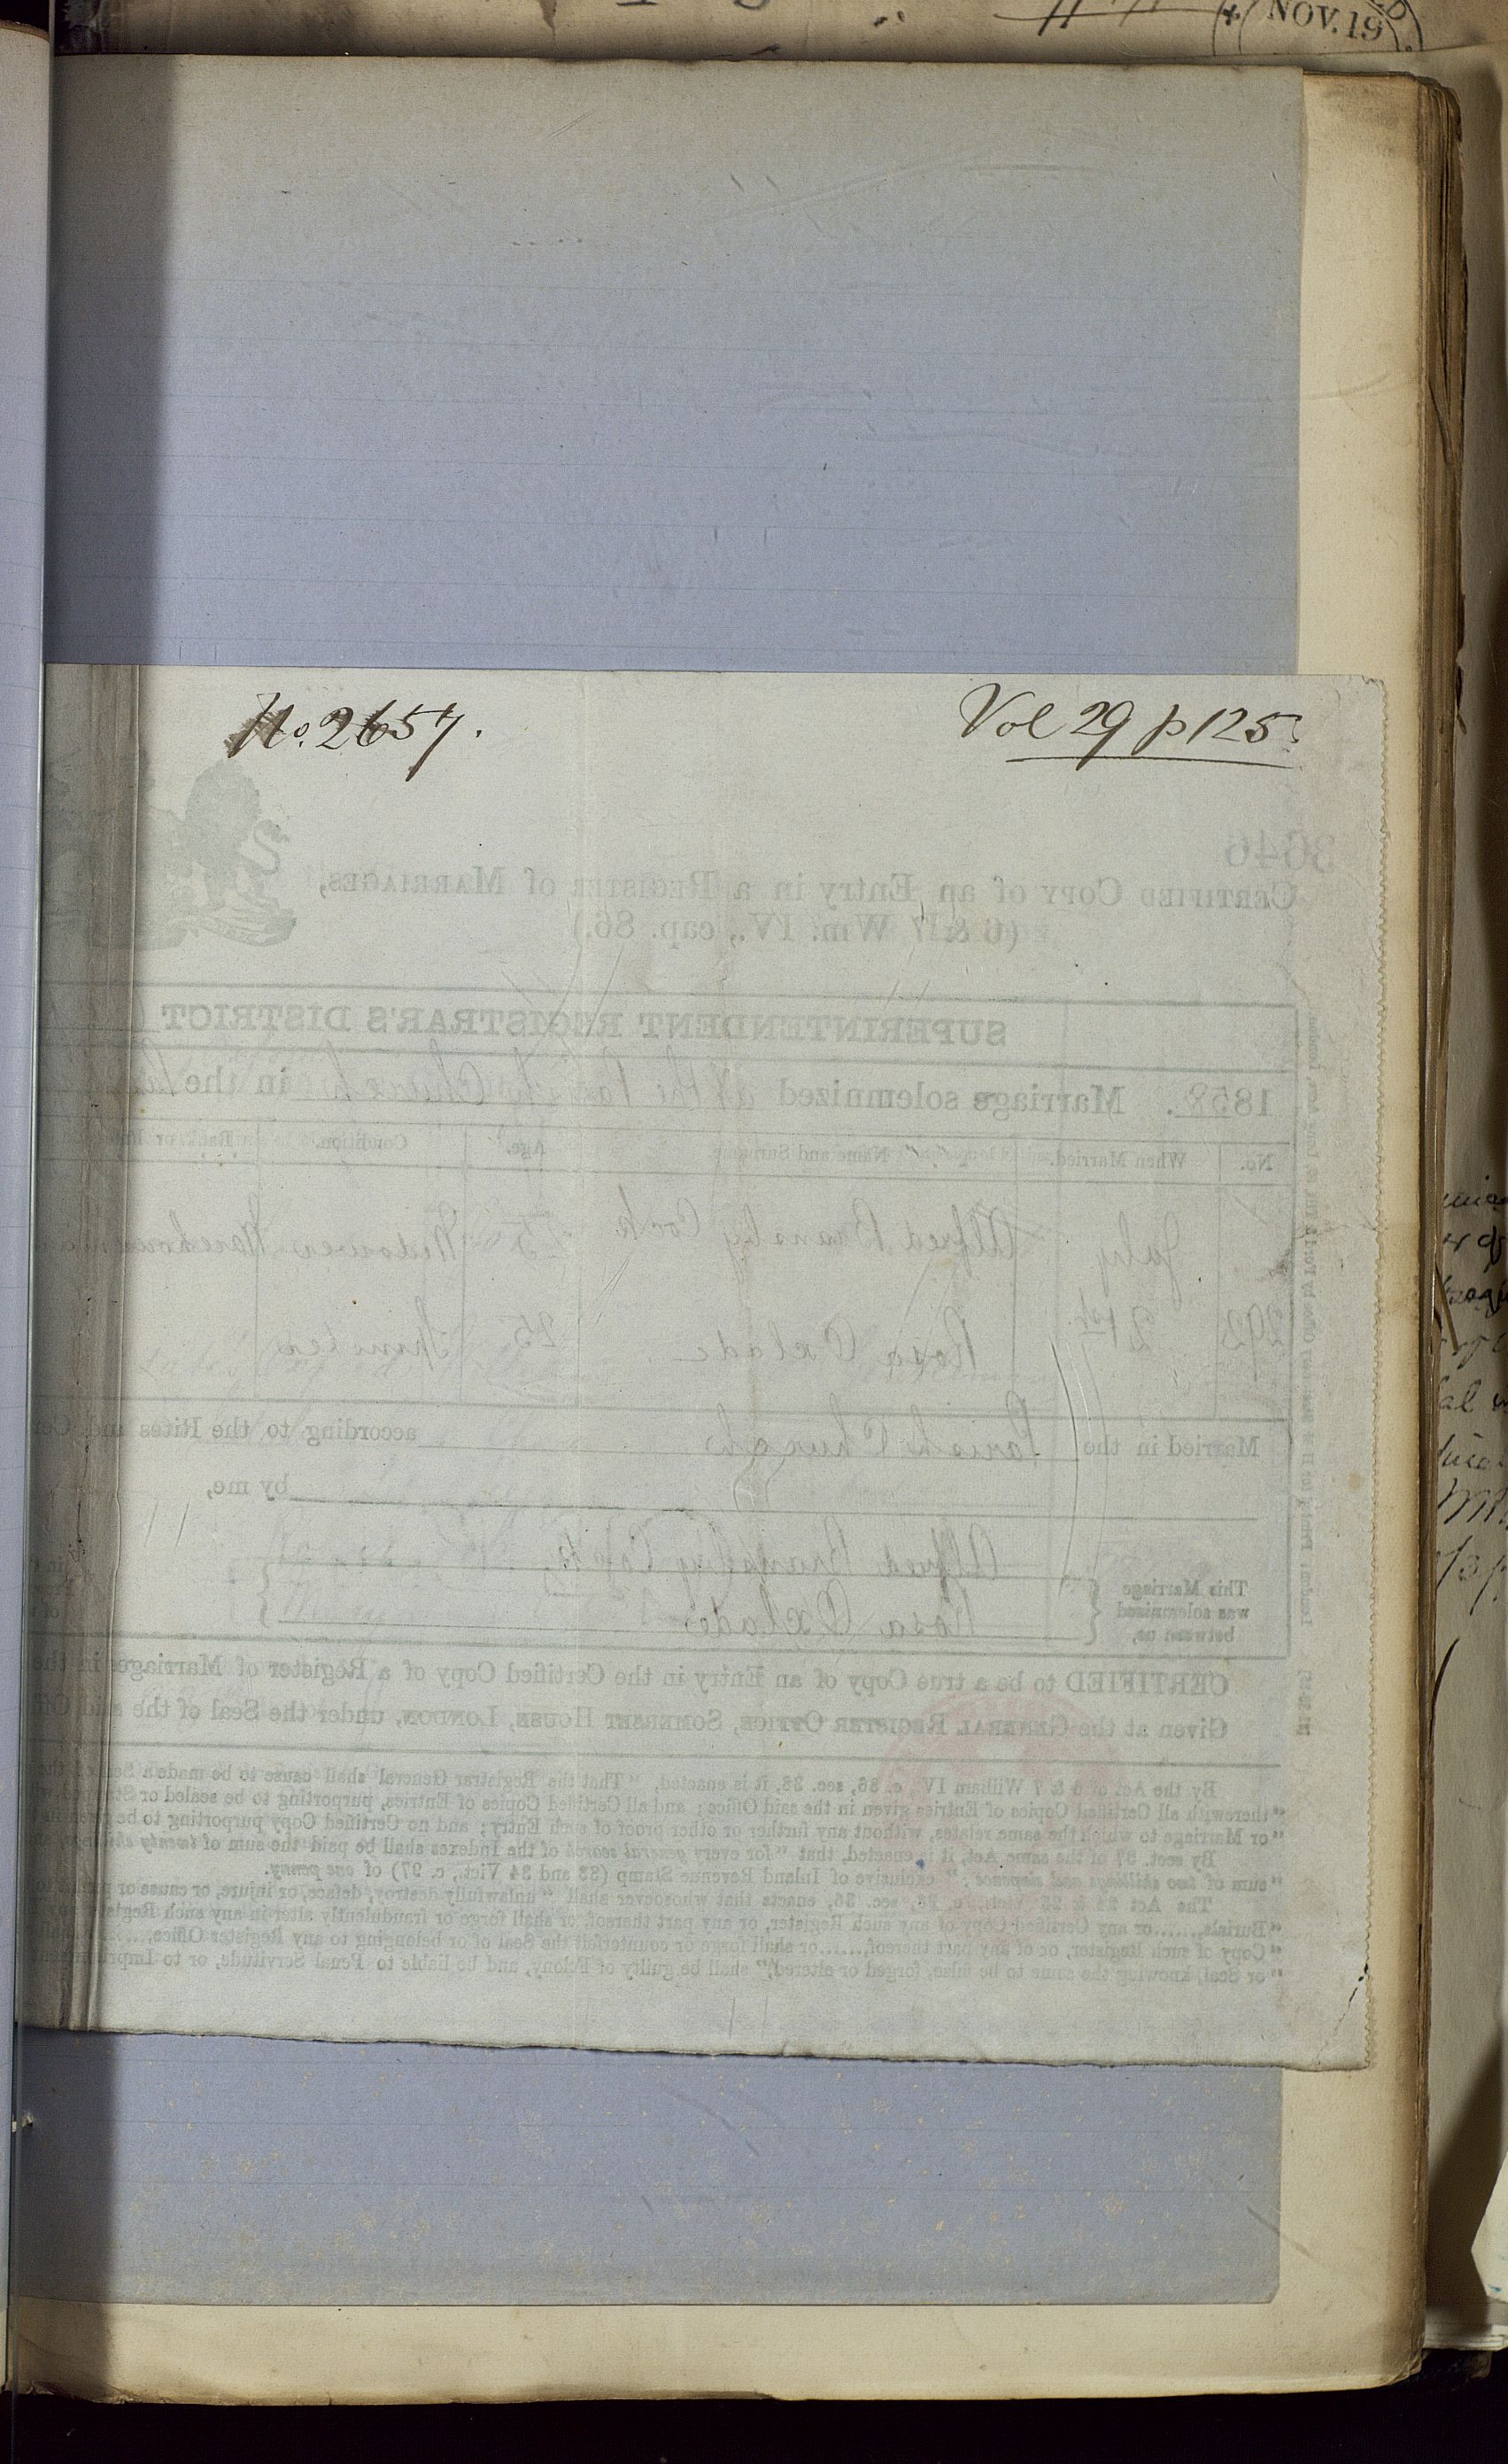 NOV. 19
No. 2657.
Vol 29 p 125.
3646
CERTIFIED COPY of an Entry in a REGISTER of MARRIAGES,
(6 & 7 Wm. IV., cap. 86.)
SUPERINTENDENT REGISTRAR'S DISTRICT
1858. Marriage solemnized at the Parish Church in the
No. When Married. Name and Surname Age. Condition. Rank or
July Alfred Bransby Cock 25 Widower Warehouseman
292 21st Rosa Oxlade 25 Spinster
Married in the Parish Church according to the Rites and Cer
by me,
This Marriage
was solemnized
between us,
Alfred Bransby Cock
Rosa Oxlade
CERTIFIED to be a true Copy of an Entry in the Certified Copy of a Register of Marriages in the
Given at the GENERAL REGISTER OFFICE, SOMERSET HOUSE, LONDON, under the Seal of the said Off
By the Act of 6 & 7 William IV., c. 86, sec. 38, it is enacted, "That the Registrar General shall cause to be made a Seal of the
"therewith all Certified Copies of Entries given in the said Office; and all Certified Copies of Entries, purporting to be sealed or Stamped
"or Marriage to which the same relates, without any further or other proof of such Entry; and no Certified Copy purporting to be given in
By sect. 37 of the same Act, it is enacted, that "for every general search of the Indexes shall be paid the sum of twenty
"sum of two shillings and sixpence;" exclusive of Inland Revenue Stamp (33 and 34 Vict., c. 97) of one penny.
The Act 24 & 25 Vict., c. 98, sec. 36, enacts that whosoever shall "unlawfully destroy, deface, or injure, or cause or
"Burials,......or any Certified Copy of any such Register, or any part thereof, or shall forge or fraudulently alter in any such Register
"Copy of such Register, or of any part thereof,......or shall forge or counterfeit the Seal of or belonging to any Register Office,
"or Seal, knowing the same to be false, forged or altered," shall be guilty of Felony, and be liable to Penal Servitude, or to Imprisonment